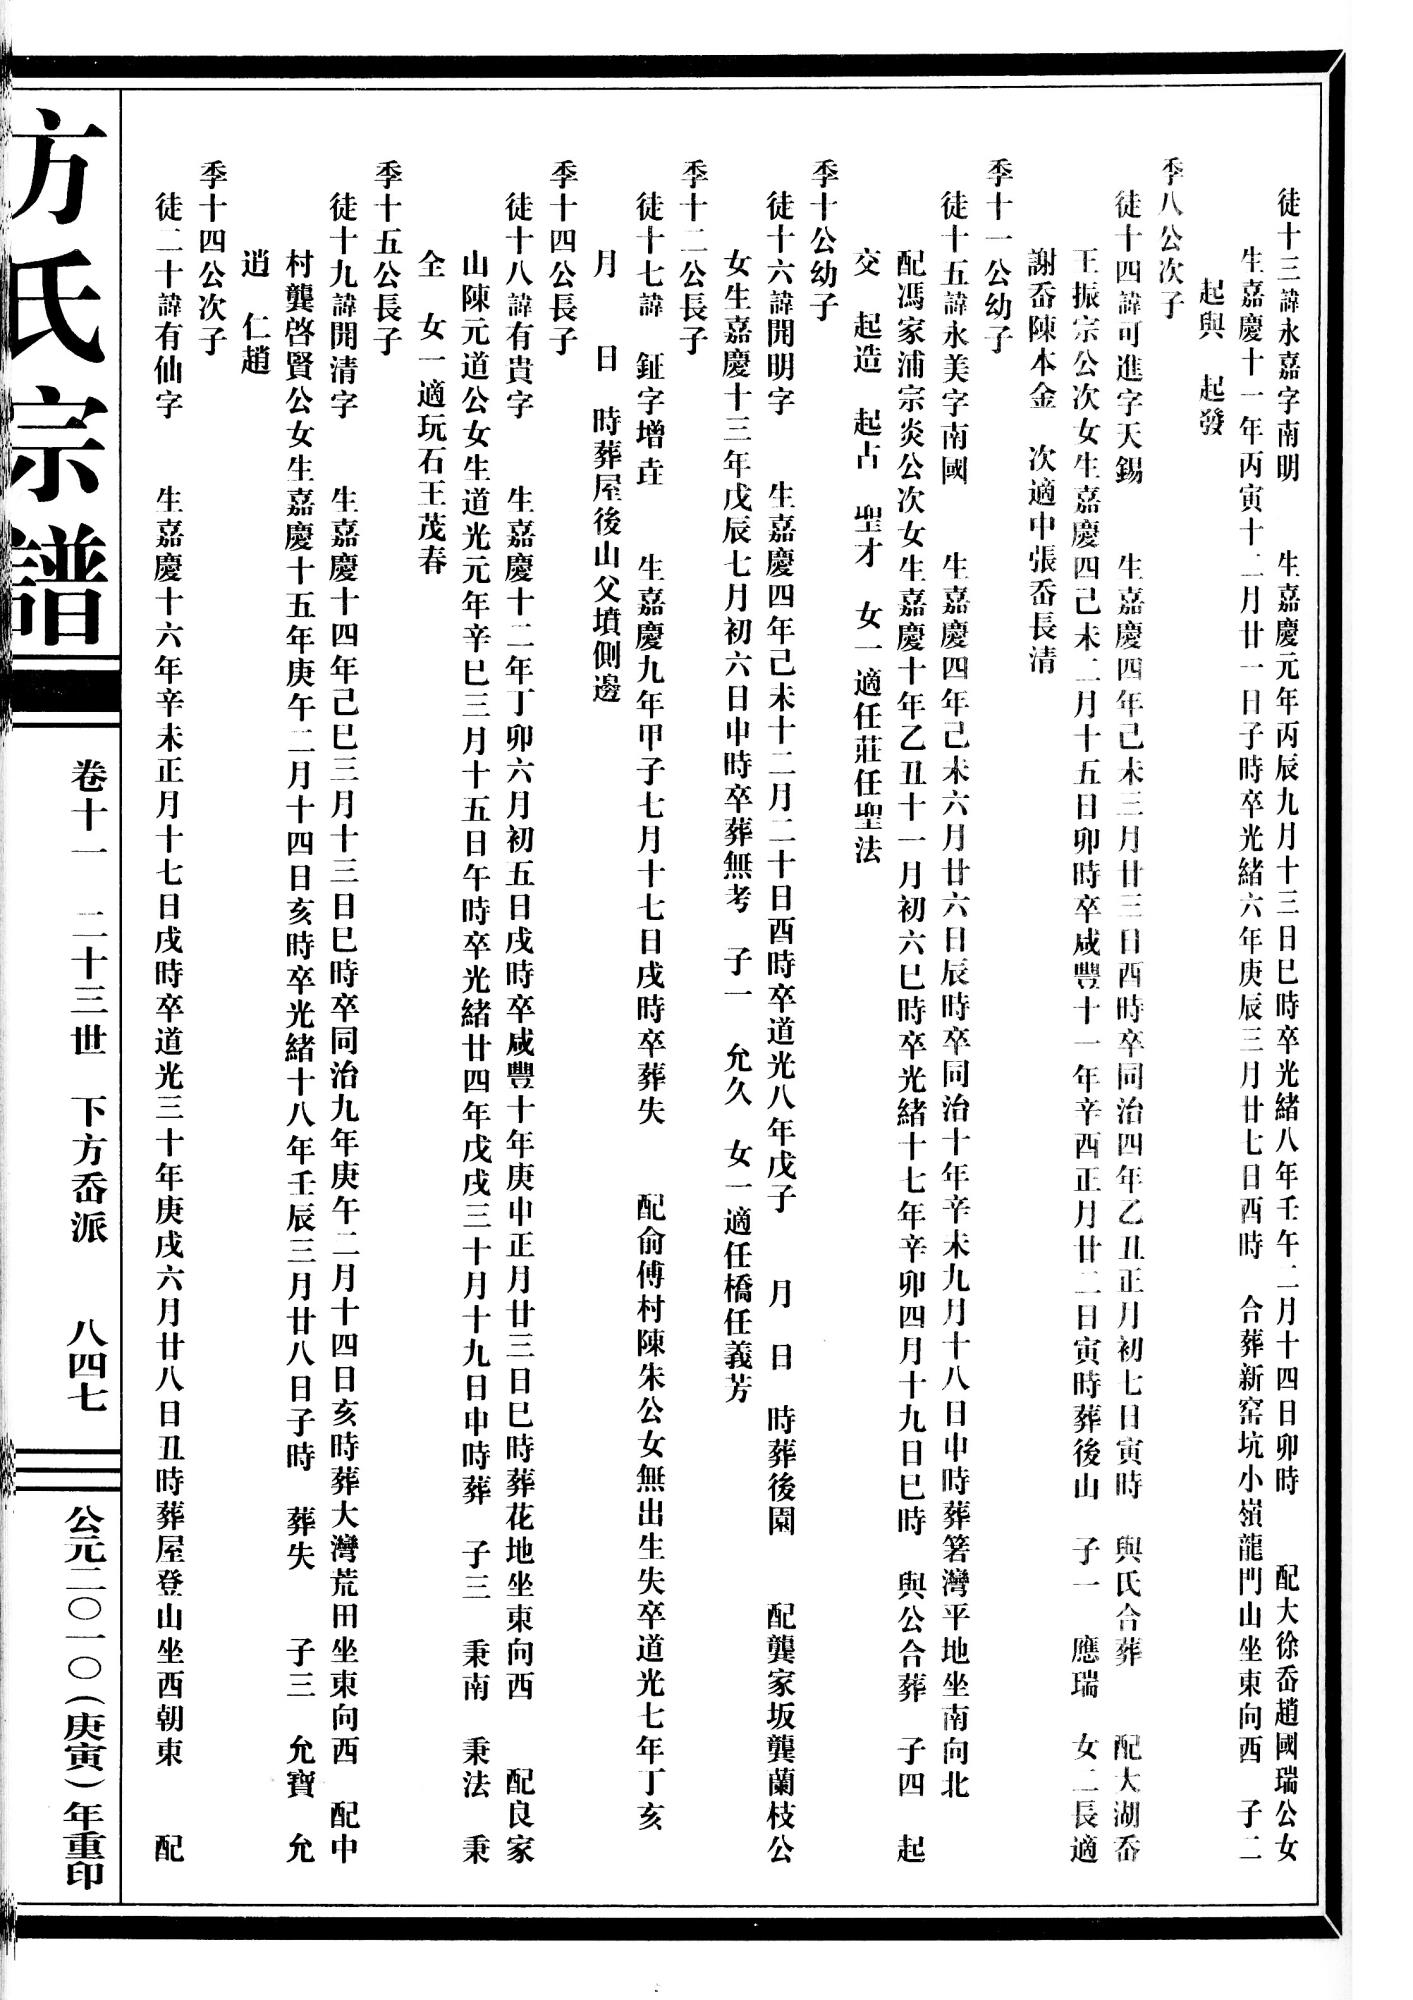 徒十三諱永嘉字南明 生嘉慶元年丙辰九月十三日巳時卒光緒八年壬午二月十四日卯時 配大徐岙趙國瑞公女
生嘉慶十一年丙寅十二月廿一日子時卒光緒六年庚辰三月廿七日酉時 合葬新窑坑小嶺龍門山坐東向西 子二
起與 起發
季八公次子
徒十四諱可進字天錫 生嘉慶四年己未三月廿三日酉時卒同治四年乙丑正月初七日寅時 與氏合葬 配大湖岙
王振宗公次女生嘉慶四己未二月十五日卯時卒咸豐十一年辛酉正月廿二日寅時葬後山 子一 應瑞 女二長適
謝岙陳本金 次適中張岙長清
季十一公幼子
徒十五諱永美字南國 生嘉慶四年己未六月廿六日辰時卒同治十年辛未九月十八日申時葬箬灣平地坐南向北
配馮家浦宗炎公次女生嘉慶十年乙丑十一月初六巳時卒光緒十七年辛卯四月十九日巳時 與公合葬 子四 起
交 起造 起占 聖才 女一適任莊任聖法
季十公幼子
徒十六諱開明字 生嘉慶四年己未十二月二十日酉時卒道光八年戊子 月 日 時葬後園 配龔家坂龔蘭枝公
女生嘉慶十三年戊辰七月初六日申時卒葬無考 子一 允久 女一適任橋任義芳
季十二公長子
徒十七諱 鉦字增垚 生嘉慶九年甲子七月十七日戌時卒葬失 配俞傅村陳朱公女無出生失卒道光七年丁亥
月 日 時葬屋後山父墳側邊
季十四公長子
徒十八諱有貴字 生嘉慶十二年丁卯六月初五日戌時卒咸豐十年庚申正月廿三日巳時葬花地坐東向西 配良家
山陳元道公女生道光元年辛巳三月十五日午時卒光緒廿四年戊戌三十月十九日申時葬 子三 秉南 秉法 秉
全 女一適玩石王茂春
季十五公長子
徒十九諱開清字 生嘉慶十四年己巳三月十三日巳時卒同治九年庚午二月十四日亥時葬大灣荒田坐東向西 配中
村龔啓賢公女生嘉慶十五年庚午二月十四日亥時卒光緒十八年壬辰三月廿八日子時 葬失 子三 允寶 允
逍 仁趙
季十四公次子
徒二十諱有仙字 生嘉慶十六年辛未正月十七日戌時卒道光三十年庚戌六月廿八日丑時葬屋登山坐西朝東 配
方氏宗譜
卷十一 二十三世 下方岙派 八四七
公元二〇一〇(庚寅)年重印